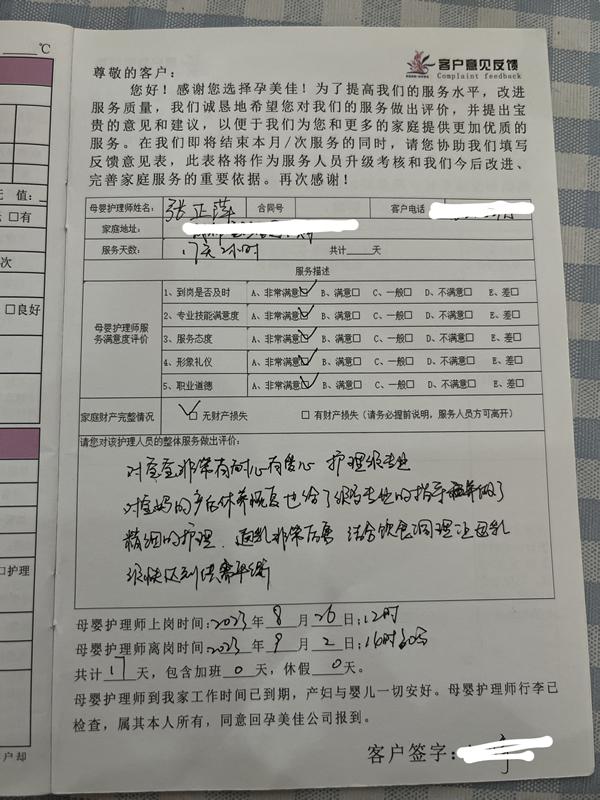 ℃
无 值：
有
次
良好
护理
户 却
客户意见反馈
Complaint feedback
尊敬的客户：
您好！感谢您选择孕美佳！为了提高我们的服务水平，改进
服务质量，我们诚恳地希望您对我们的服务做出评价，并提出宝
贵的意见和建议，以便于我们为您和更多的家庭提供更加优质的
服务。在我们即将结束本月/次服务的同时，请您协助我们填写
反馈意见表，此表格将作为服务人员升级考核和我们今后改进、
完善家庭服务的重要依据。再次感谢！
母婴护理师姓名： 张正萍 合同号 客户电话
家庭地址：
服务天数： 17天2小时 共计____天
服务描述
母婴护理师服务满意度评价
1、到岗是否及时 A、非常满意☑ B、满意□ C、一般□ D、不满意□ E、差□
2、专业技能满意度 A、非常满意☑ B、满意□ C、一般□ D、不满意□ E、差□
3、服务态度 A、非常满意☑ B、满意□ C、一般□ D、不满意□ E、差□
4、形象礼仪 A、非常满意☑ B、满意□ C、一般□ D、不满意□ E、差□
5、职业道德 A、非常满意☑ B、满意□ C、一般□ D、不满意□ E、差□
家庭财产完整情况 ☑ 无财产损失 □ 有财产损失（请务必提前说明，服务人员方可离开）
请您对该护理人员的整体服务做出评价：
对宝宝非常有耐心有责心 护理很专业
对宝妈的产后休养恢复也给了很多专业的指导 做了
精细的护理．通乳非常厉害 结合饮食调理让母乳
很快达到供需平衡
母婴护理师上岗时间：2023年 8 月 26 日：12时
母婴护理师离岗时间：2023年 9 月 2 日：16时
共计 17 天，包含加班 0 天，休假 0 天。
母婴护理师到我家工作时间已到期，产妇与婴儿一切安好。母婴护理师行李已
检查，属其本人所有，同意回孕美佳公司报到。
客户签字：